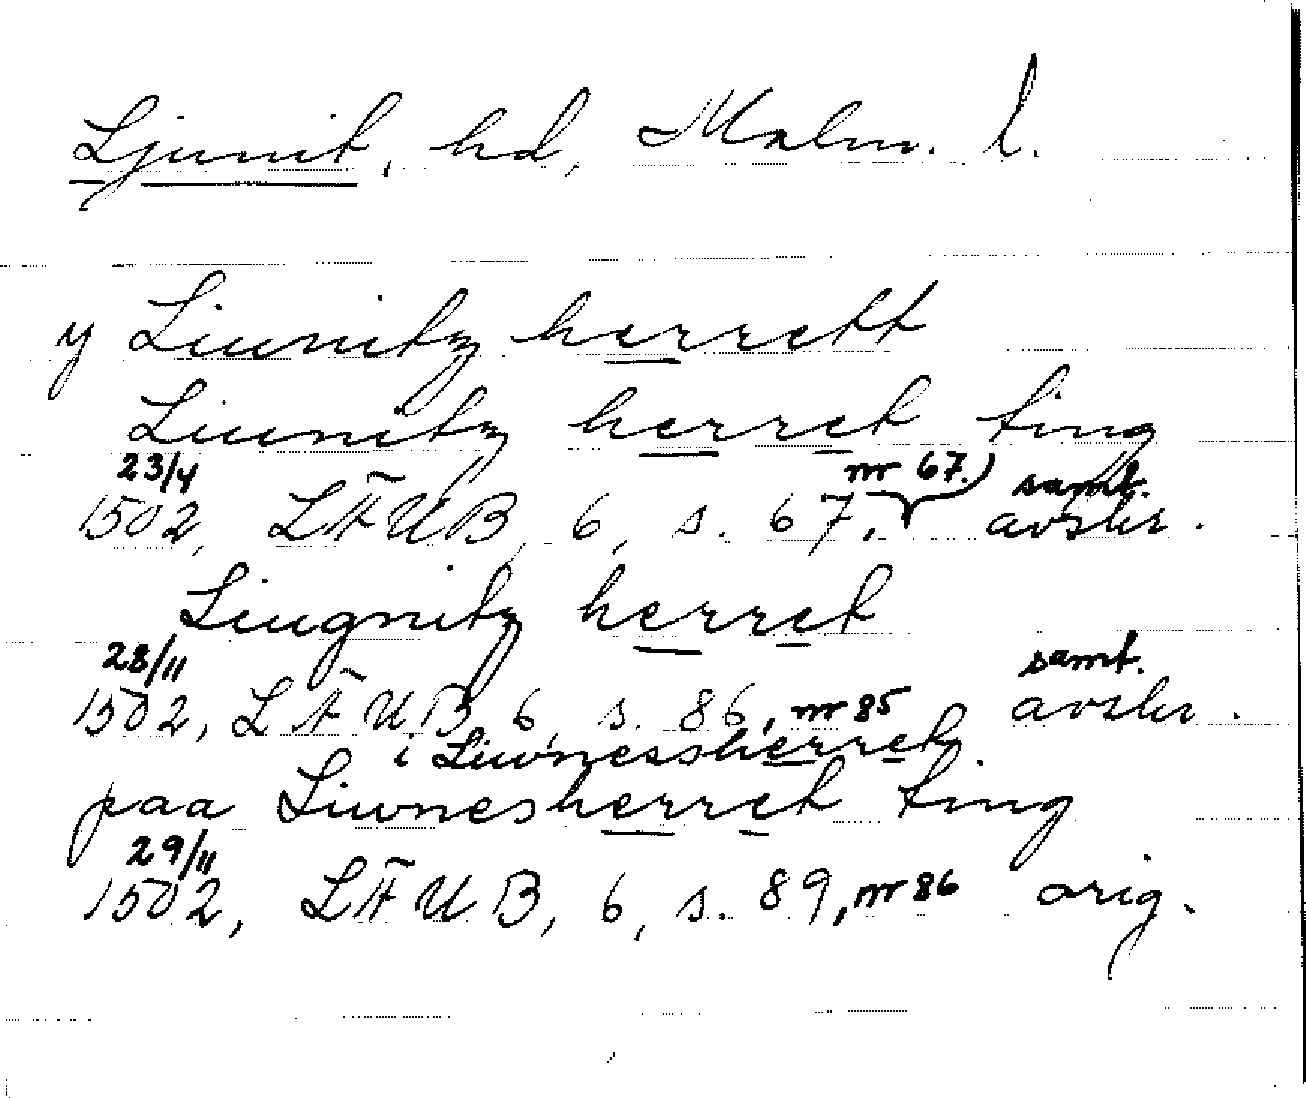 Ljunit, hd, Malm. l.
y Liunitz herrett
Liunitz herret ting
23/4 nr 67.) samt.
1502, LÄUB, 6, s. 67, avskr.
Liugnitz herret
28/11 samt.
1502, LÄUB 6, s. 86, nr 85 avskr.
i Liwnessherret
paa Liwnesherret ting
29/11
1502, LÄUB, 6, s. 89, nr 86 orig.